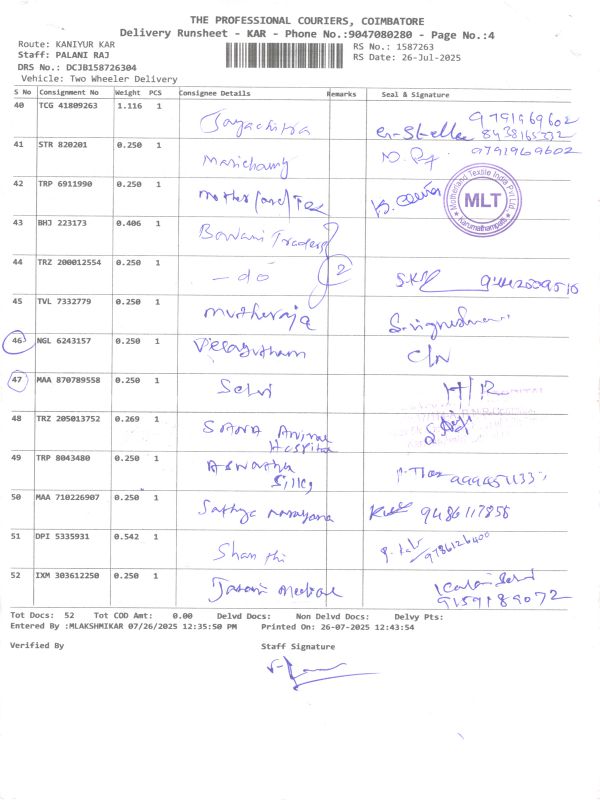 THE PROFESSIONAL COURIERS, COIMBATORE
Delivery Runsheet - KAR - Phone No.:9047080280 - Page No.:4
Route: KANIYUR KAR RS No.: 1587263
Staff: PALANI RAJ RS Date: 26-Jul-2025
DRS No.: DCJB158726304
Vehicle: Two Wheeler Delivery
S No Consignment No Weight PCS Consignee Details Remarks Seal & Signature
40 TCG 41809263 1.116 1 Jayachitra 9791969602
41 STR 820201 0.250 1 Marichamy 9791969602
42 TRP 6911990 0.250 1 Mother Momerland Textile India Pvt Ltd MLT Karumathampatti
43 BHJ 223173 0.406 1 Bowani Traders
44 TRZ 200012554 0.250 1 - do 2
45 TVL 7332779 0.250 1 Mutheraja
46 NGL 6243157 0.250 1 C/N
47 MAA 870789558 0.250 1 Selvi H/R
48 TRZ 205013752 0.269 1 Animal
Hospital
49 TRP 8043480 0.250 1 Aswatha
Silks
50 MAA 710226907 0.250 1 Sathya Narayana 9486117858
51 DPI 5335931 0.542 1 Shanthi 9786126400
52 IXM 303612250 0.250 1 Medical 9159189072
Tot Docs: 52 Tot COD Amt: 0.00 Delvd Docs: Non Delvd Docs: Delvy Pts:
Entered By :MLAKSHMIKAR 07/26/2025 12:35:50 PM Printed On: 26-07-2025 12:43:54
Verified By Staff Signature